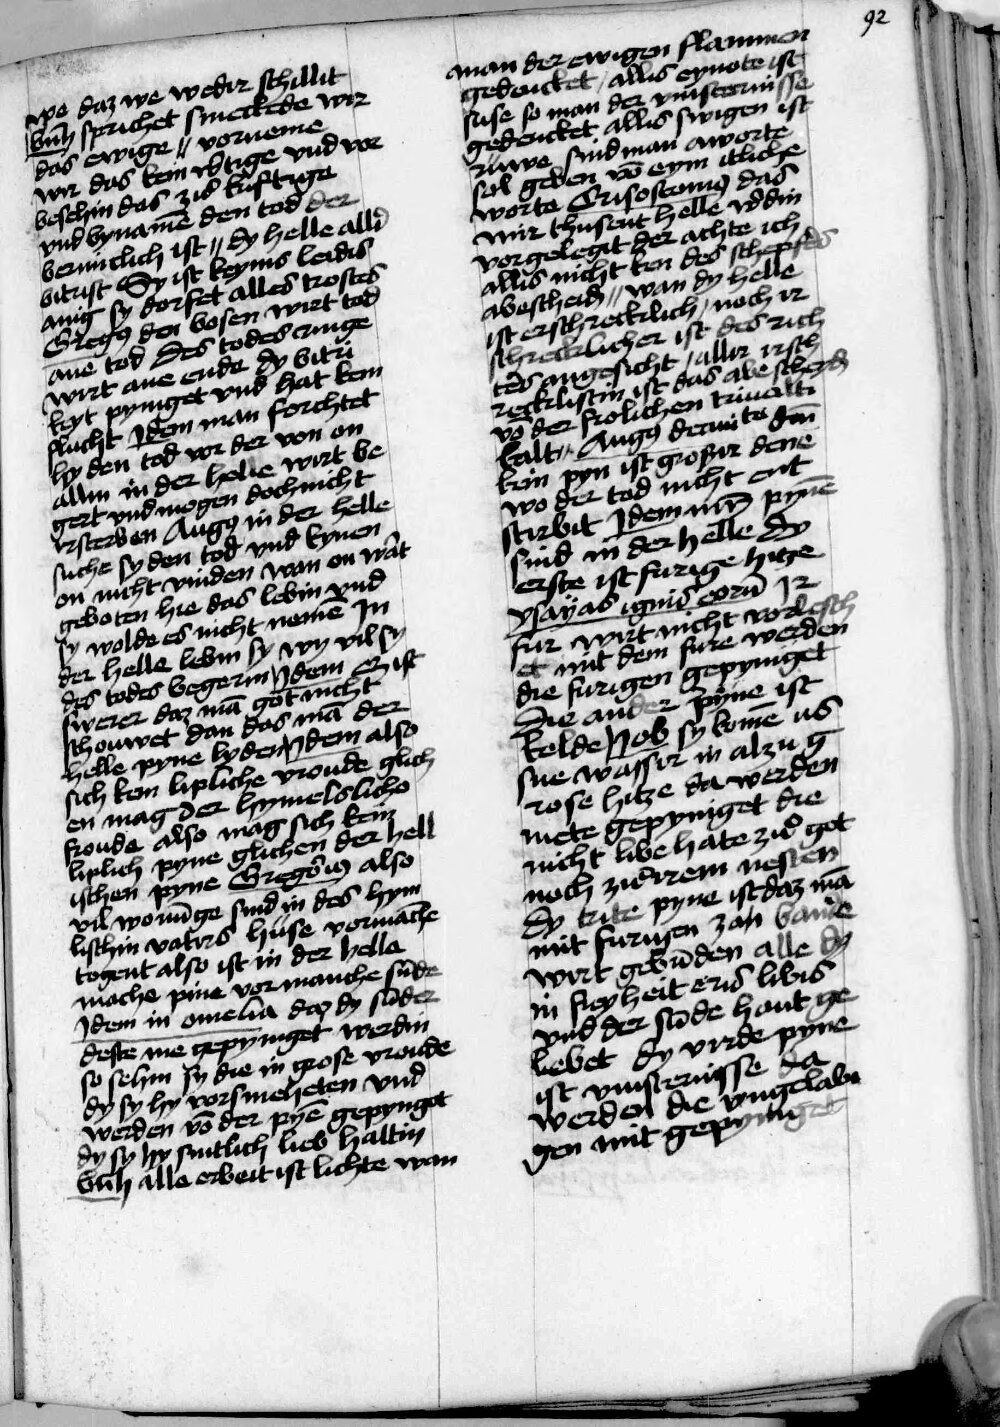 92
we daz we wedir schillit
bnh sprichet smeckede wir
das ewige // vorneme
wir das kein wtige vnd vor
besehin das zuͦ kuͤftige
vnd bynamē den tod der
vermitlich ist // dy helle allꝰ
bitrist Sy ist keynis leidis
anig sy dorfet alles trostes
Gregꝰ den bosen wirt tod
ane tod Des todes ringe
wirt ane ende dy bitri
keyt pyniget vnd hat kein
flucht Jdem man forchtet
hy den tod vor der von on
allin in der helle wirt be
gert vnd mogen doch nicht
irsterben Augꝰ in der helle
suche sy den tod vnd kynen
on nicht vinden wan on wāt
geboten hie das lebin vnd
sy wolde es nicht nemē Jn
der helle lebin sy wy vil sy
des todes begerin Jdem Es ist
swerer daz mā got nicht
schouwet dan das mā der
helle pyne lyden Jdem also
sich kein lipliche vroude glich
en mag der hymelsliche
froude also mag sich kein
liplich pyne glichen der hell
ischen pyne Gregoriꝰ also
vil wonūge sind in des hym
lischin vatirs huse vormāche
togent also ist in der helle
mache pine vor manche sūde
Jdem in omelia daz dy sūder
deste me gepyniget werdin
so sehin sy die in grose vroude
dy sy hy vorsmeheten vnd
werden vō der pynē gepyngot
dy sy hy suntlich lieb haltin
bnh alle erbeit ist lichte wan
man der ewigen flammen
gedencket / allis eynote ist
suse so man der vinsternisse
gedencket allis swigen ist
ruwe sind man aworte
sal geben vō eym itliche
worte Crisostomꝰ das
mir thusent helle wdin
vorgelegit der achte ich
allis nicht ken des schepfers
abescheid // wan dy helle
ist erschrecklich / noch ir
schrecklicher ist des rich
ters angesicht / allir irsch
recklistin ist das abescheid
vō der frolichen triualti
kalt // Augꝰ
kein pyn ist grosir dene
wo der tod nicht ent
stirbit Jdem pynē
sind in der helle Dy
erste ist furige hitze
ysayas ignis eorū Jr
fur wirt nicht vordesch
et mit dem fure werden
die furigen gepyniget
Die ander pyne ist
kelde Job sy komē us
sne wassir in alzu g
rose hitze da werden
mete gepyniget die
nicht libe hate zuͦ got
noch zuͦ irem nesten
Dy trite pyne ist daz mā
mit furigen bande
wirt gebūden alle dy
in fryheit eris libis
vnd der sūde hant ge
liebet Dy virde pyne
ist vinsternisse da
werden die vngelabi
gen mit gepyniget